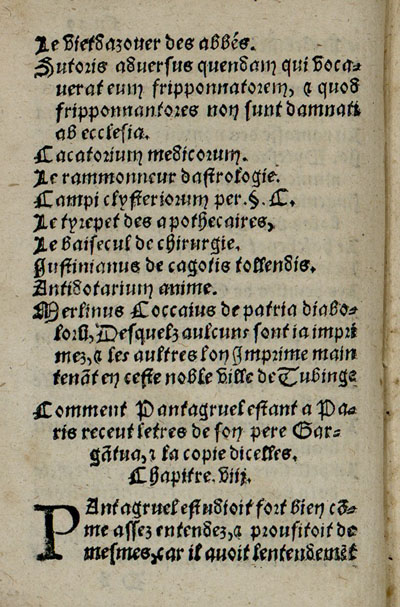 Le vietdazouer des abbés.
Sutoris adversus quendam qui voca-
uerat eum fripponnatorem, & quod
fripponnantores non sunt damnati
ab ecclesia.
Cacatorium medicorum.
Le rammonneur dastrologie.
Campi clysteriorum per. §. C.
Le tyrepet des apothecaires,
Le baisecul de chirurgie.
Justinianus de cagotis tollendis.
Antidotarium anime.
Merlinus Coccaius de patria diabo-
lorũ, Desquelz aulcuns sont ia impri
mez, & les aultres lon Imprime main
tenãt en ceste noble ville de Tubinge
Comment Pantagruel estant a Pa-
ris receut letres de son pere Gar-
gãtua, & la copie dicelles.
Chapitre. viij.
PAntagruel estudioit fort bien cõ-
me assez entendez, & proufitoit de
mesmes, car il auoit lentendemẽt